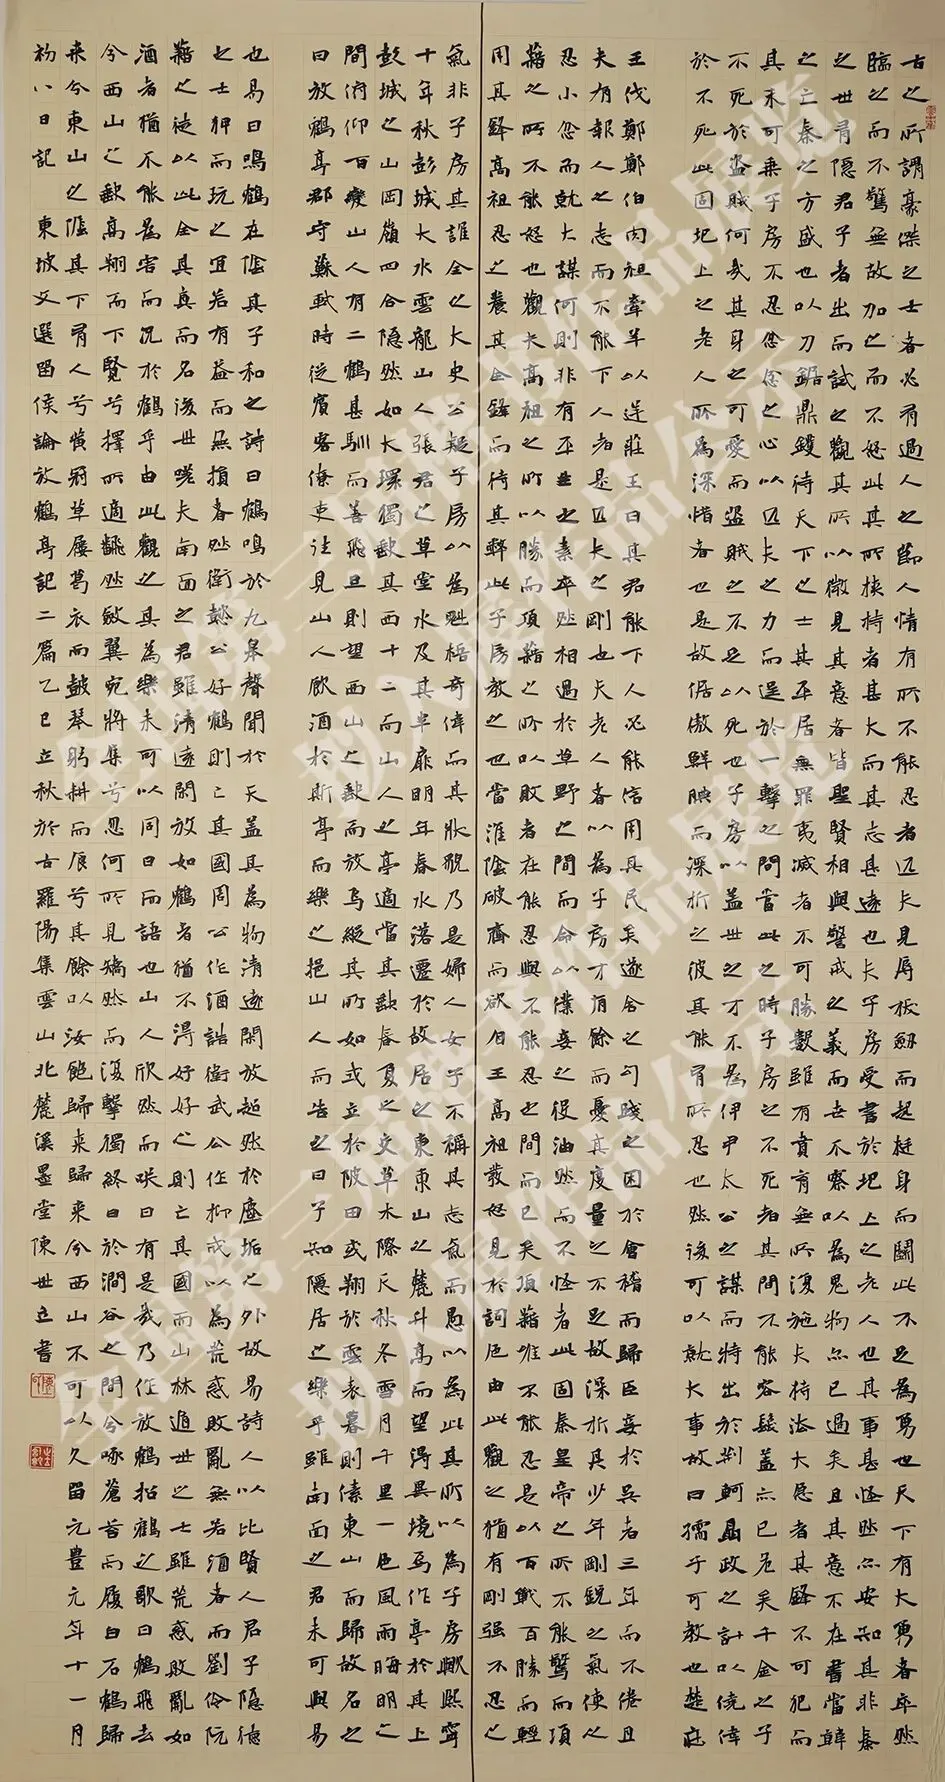 古之所謂豪傑之士者必有過人之節人情有所不能忍者匹夫見辱拔劍而起挺身而鬬此不足為勇也天下有大勇者卒然
臨之而不驚無故加之而不怒此其所挾持者甚大而其志甚遠也夫子房受書於圯上之老人也其事甚怪然亦安知其非秦
之世有隱君子者出而試之觀其所以微見其意者皆聖賢相與警戒之義而世不察以為鬼物亦已過矣且其意不在書當韓
之亡秦之方盛也以刀鋸鼎鑊待天下之士其平居無罪夷滅者不可勝數雖有賁育無所復施夫持法太急者其鋒不可犯而
其末可乘子房不忍忿忿之心以匹夫之力而逞於一擊之間當此之時子房之不死者其間不能容髮蓋亦已危矣千金之子
不死於盜賊何哉其身之可愛而盜賊之不足以死也子房以蓋世之才不為伊尹太公之謀而特出於荊軻聶政之計以僥倖
於不死此固圯上之老人所為深惜者也是故倨傲鮮腆而深折之彼其能有所忍也然後可以就大事故曰孺子可教也楚莊
王伐鄭鄭伯肉袒牽羊以逆莊王曰其君能下人必能信用其民矣遂舍之句踐之困於會稽而歸臣妾於吳者三年而不倦且
夫有報人之志而不能下人者是匹夫之剛也夫老人者以為子房才有餘而憂其度量之不足故深折其少年剛銳之氣使之
忍小忿而就大謀何則非有平生之素卒然相遇於草野之間而命以僕妾之役油然而不怪者此固秦皇帝之所不能驚而項
籍之所不能怒也觀夫高祖之所以勝而項籍之所以敗者在能忍與不能忍之間而已矣項籍唯不能忍是以百戰百勝而輕
用其鋒高祖忍之養其全鋒而待其弊此子房教之也當淮陰破齊而欲自王高祖發怒見於詞色由此觀之猶有剛強不忍之
氣非子房其誰全之太史公疑子房以為魁梧奇偉而其狀貌乃是婦人女子不稱其志氣而愚以為此其所以為子房歟熙寧
十年秋彭城大水雲龍山人張君之草堂水及其半扉明年春水落遷於故居之東東山之麓升高而望得異境焉作亭於其上
彭城之山岡嶺四合隱然如大環獨缺其西十二而山人之亭適當其缺春夏之交草木際天秋冬雪月千里一色風雨晦明之
間俯仰百變山人有二鶴甚馴而善飛旦則望西山之缺而放焉縱其所如或立於陂田或翔於雲表暮則傃東山而歸故名之
曰放鶴亭郡守蘇軾時從賓客僚吏往見山人飲酒於斯亭而樂之挹山人而告之曰子知隱居之樂乎雖南面之君未可與易
也易曰鳴鶴在陰其子和之詩曰鶴鳴於九皋聲聞於天蓋其為物清遠閑放超然於塵垢之外故易詩人以比賢人君子隱德
之士狎而玩之宜若有益而無損者然衛懿公好鶴則亡其國周公作酒誥衛武公作抑戒以為荒惑敗亂無若酒者而劉伶阮
籍之徒以此全其真而名後世嗟夫南面之君雖清遠閑放如鶴者猶不得好好之則亡其國而山林遁世之士雖荒惑敗亂如
酒者猶不能為害而況於鶴乎由此觀之其為樂未可以同日而語也山人欣然而笑曰有是哉乃作放鶴招鶴之歌曰鶴飛去
兮西山之缺高翔而下覽兮擇所適翻然斂翼宛將集兮忽何所見矯然而復擊獨終日於澗谷之間兮啄蒼苔而履白石鶴歸
來兮東山之陰其下有人兮黃冠草屨葛衣而鼓琴躬耕而食兮其餘以汝飽歸來歸來兮西山不可以久留元豐元年十一月
初八日記 東坡文選留侯論放鶴亭記二篇乙巳立秋於古羅陽集雲山北麓溪墨堂陳世立書